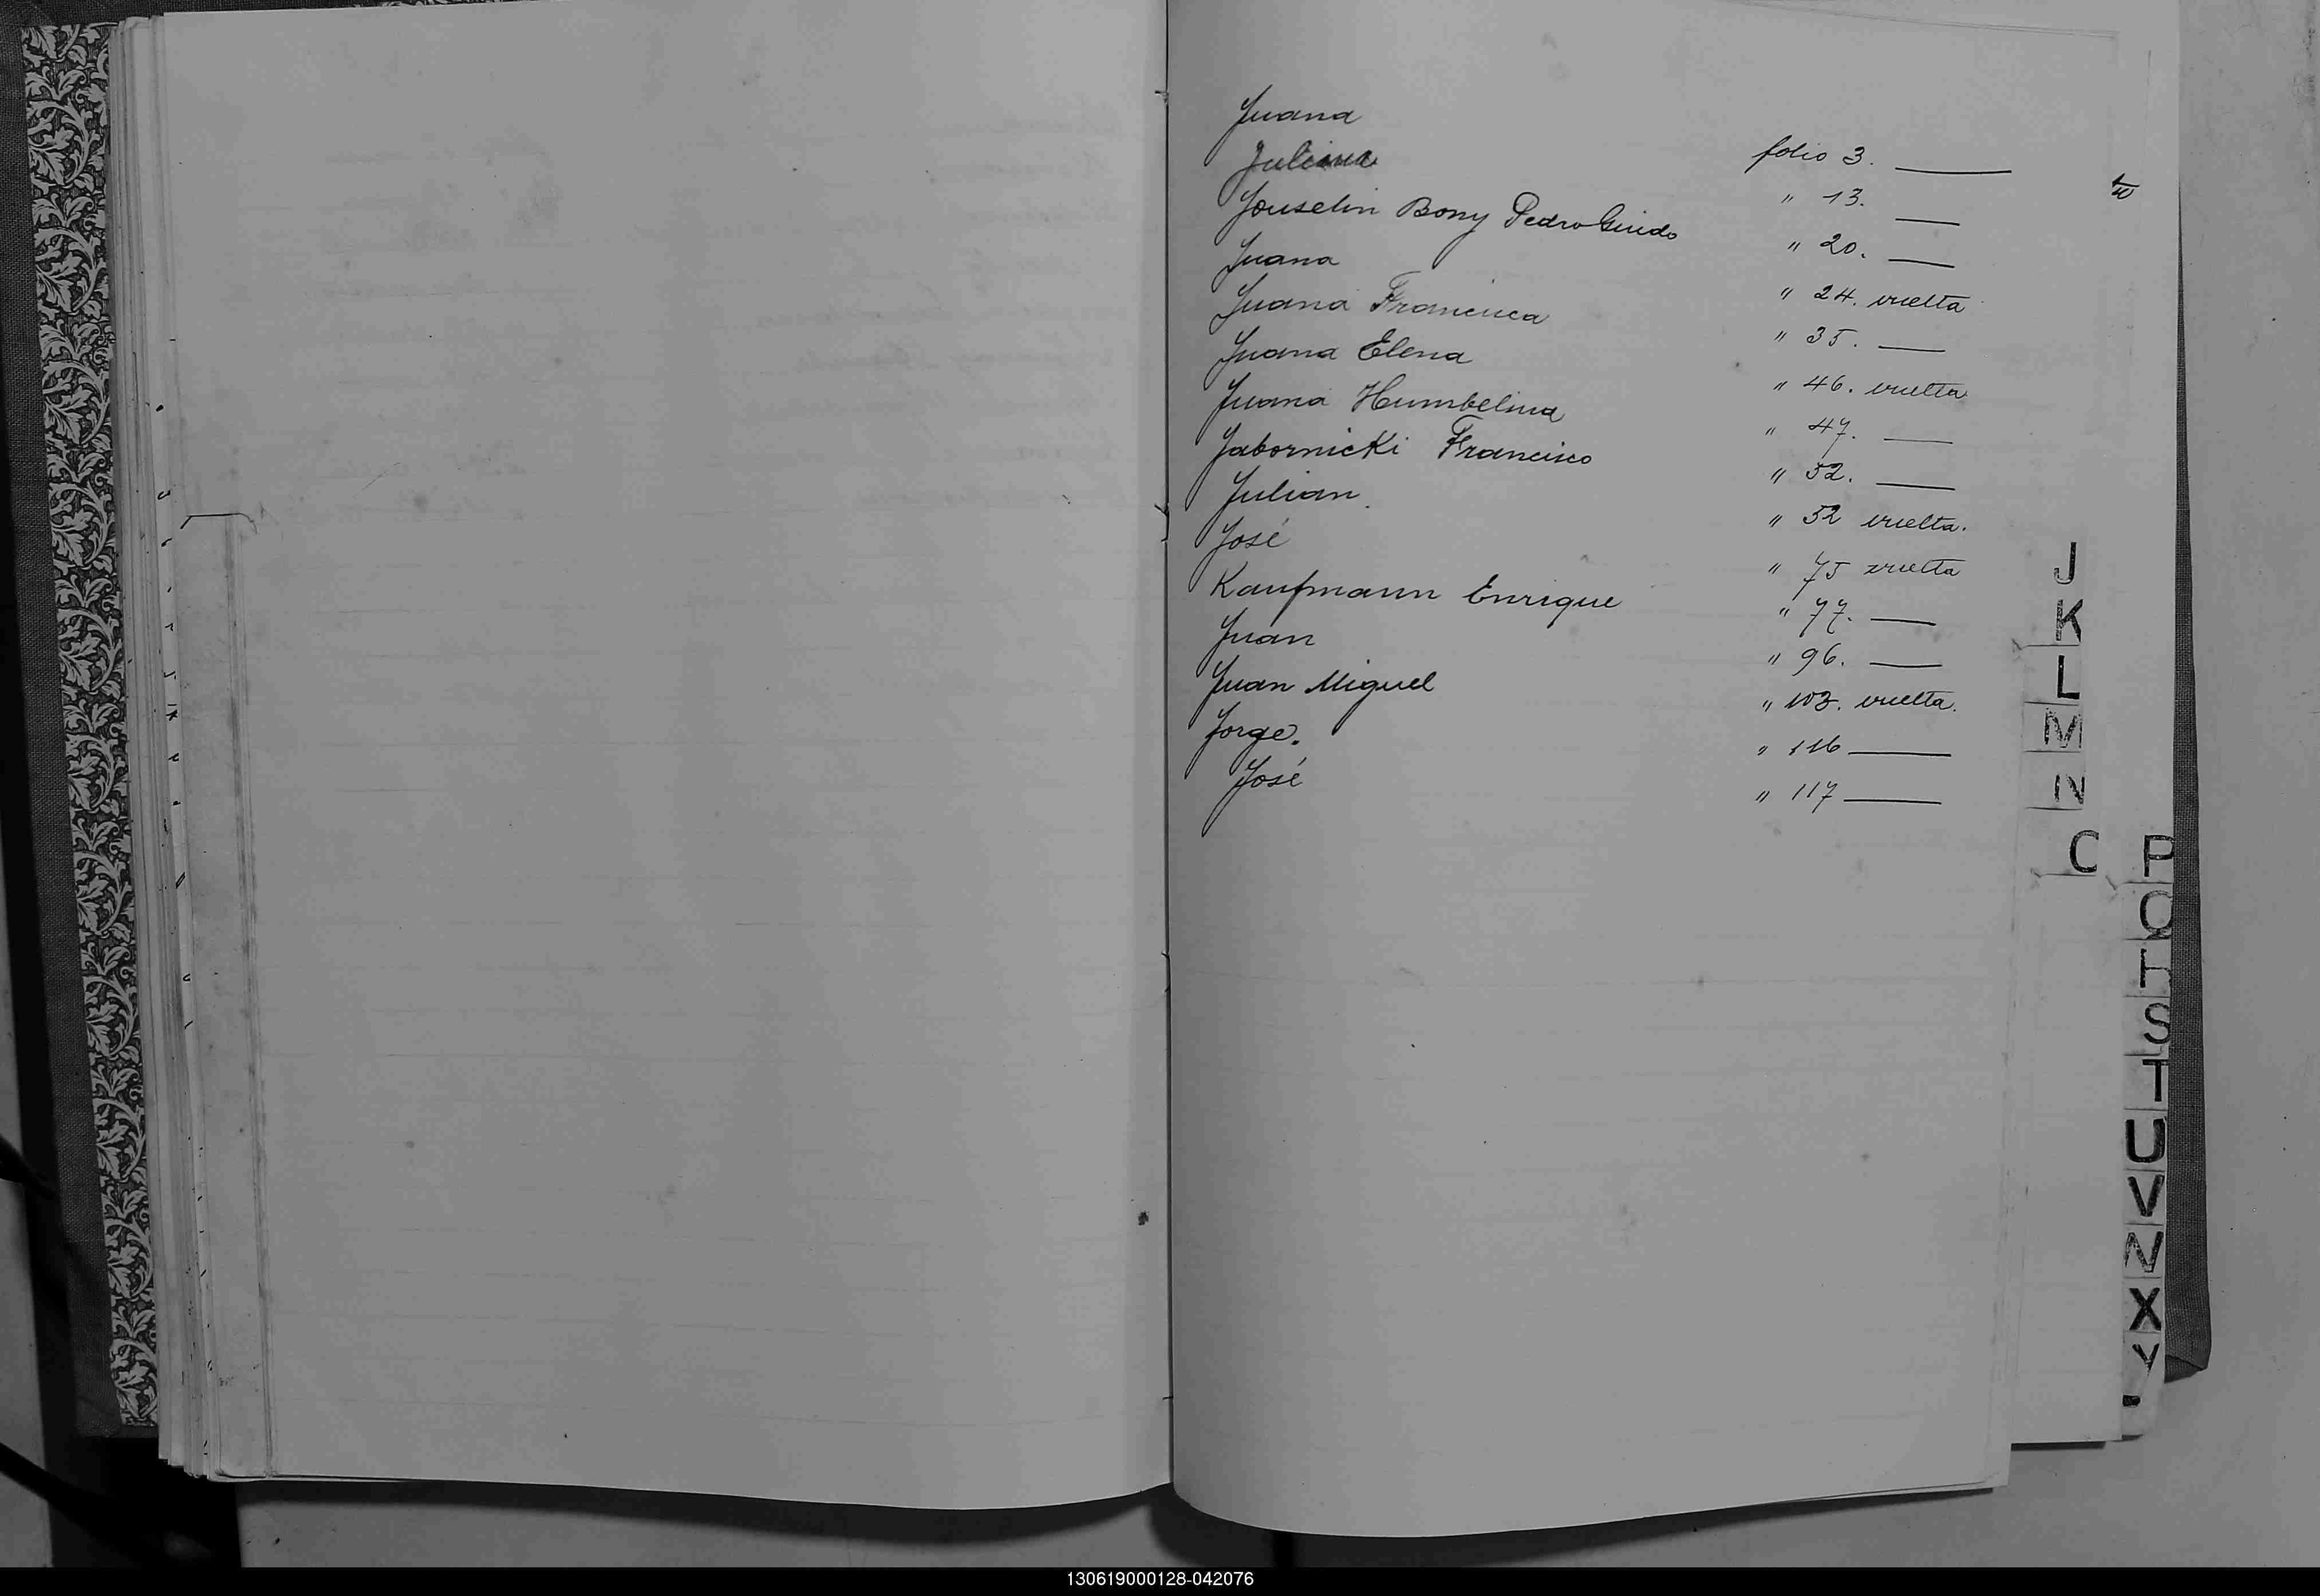 Juana folio 3.
Juliana " 13.
Jouselin Bony Pedro Guido " 20.
Juana " 24. vuelta
Juana Francisca " 35.
Juana Elena " 46. vuelta
Juana Humbelina " 47.
Jabornicki Francisco " 52.
Julian. " 52 vuelta.
José " 75 vuelta
Kaufmann Enrique " 77.
Juan " 96.
Juan Miguel " 103. vuelta.
Jorge. " 116
José " 117
J
K
L
M
N
P
S
T
U
V
X
Y
130619000128-042076